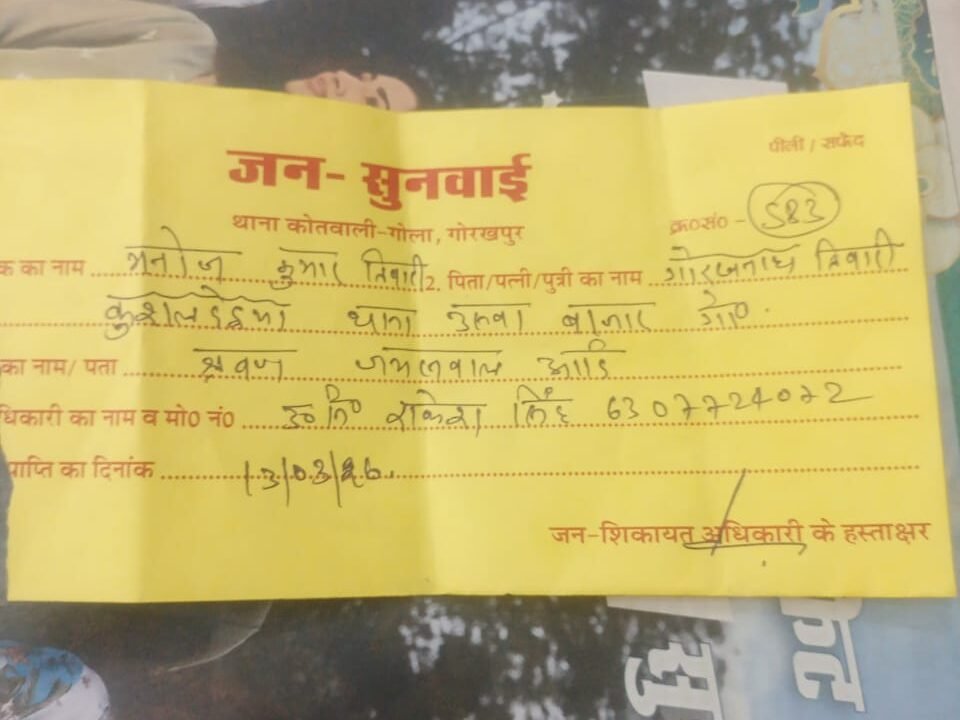 पीली / सफेद
जन- सुनवाई
थाना कोतवाली-गोला, गोरखपुर
क्र०सं० - 583
क का नाम मनोज कुमार तिवारी 2. पिता/पत्नी/पुत्री का नाम गोरखनाथ तिवारी
थाना उरुवा बाजार गो०
का नाम/ पता श्रवण जयसवाल आदि
धिकारी का नाम व मो० नं० उ०नि० राकेश सिंह 6307724072
प्राप्ति का दिनांक 13/03/26
जन-शिकायत अधिकारी के हस्ताक्षर